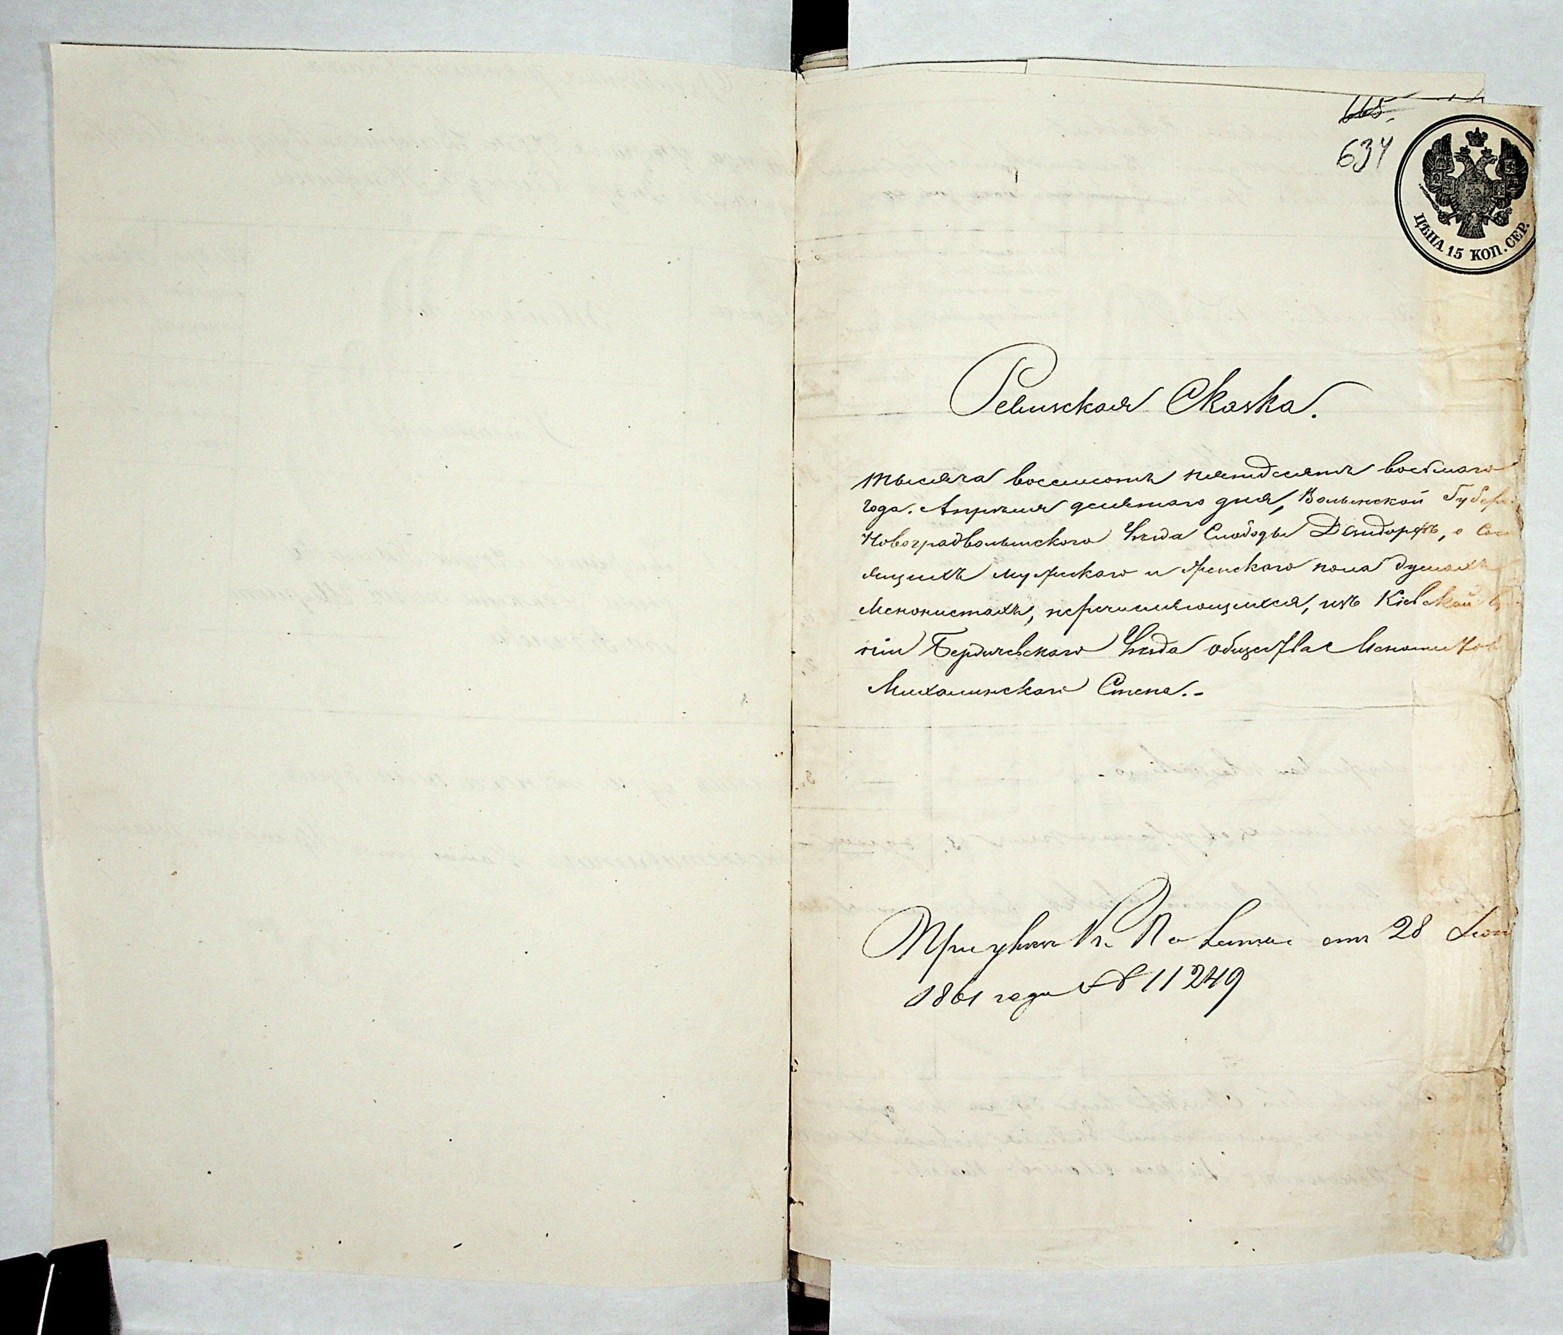 665.
634
ЦѢНА 15 КОП. СЕР.
Ревизская Сказка.
тысяча восемсотъ пятдесятъ восьмаго
года. Апрѣля десятаго дня, Волынской Губер
Новоградволынского Уѣзда Слободы о сос
ящихъ мужскаго и женскаго пола душахъ
Менонистахъ, перечисляющихся, изъ Кіевской
ніи Бердичевского Уѣзда общества Менонистов
Михалинского
от 28
1861 года № 11249